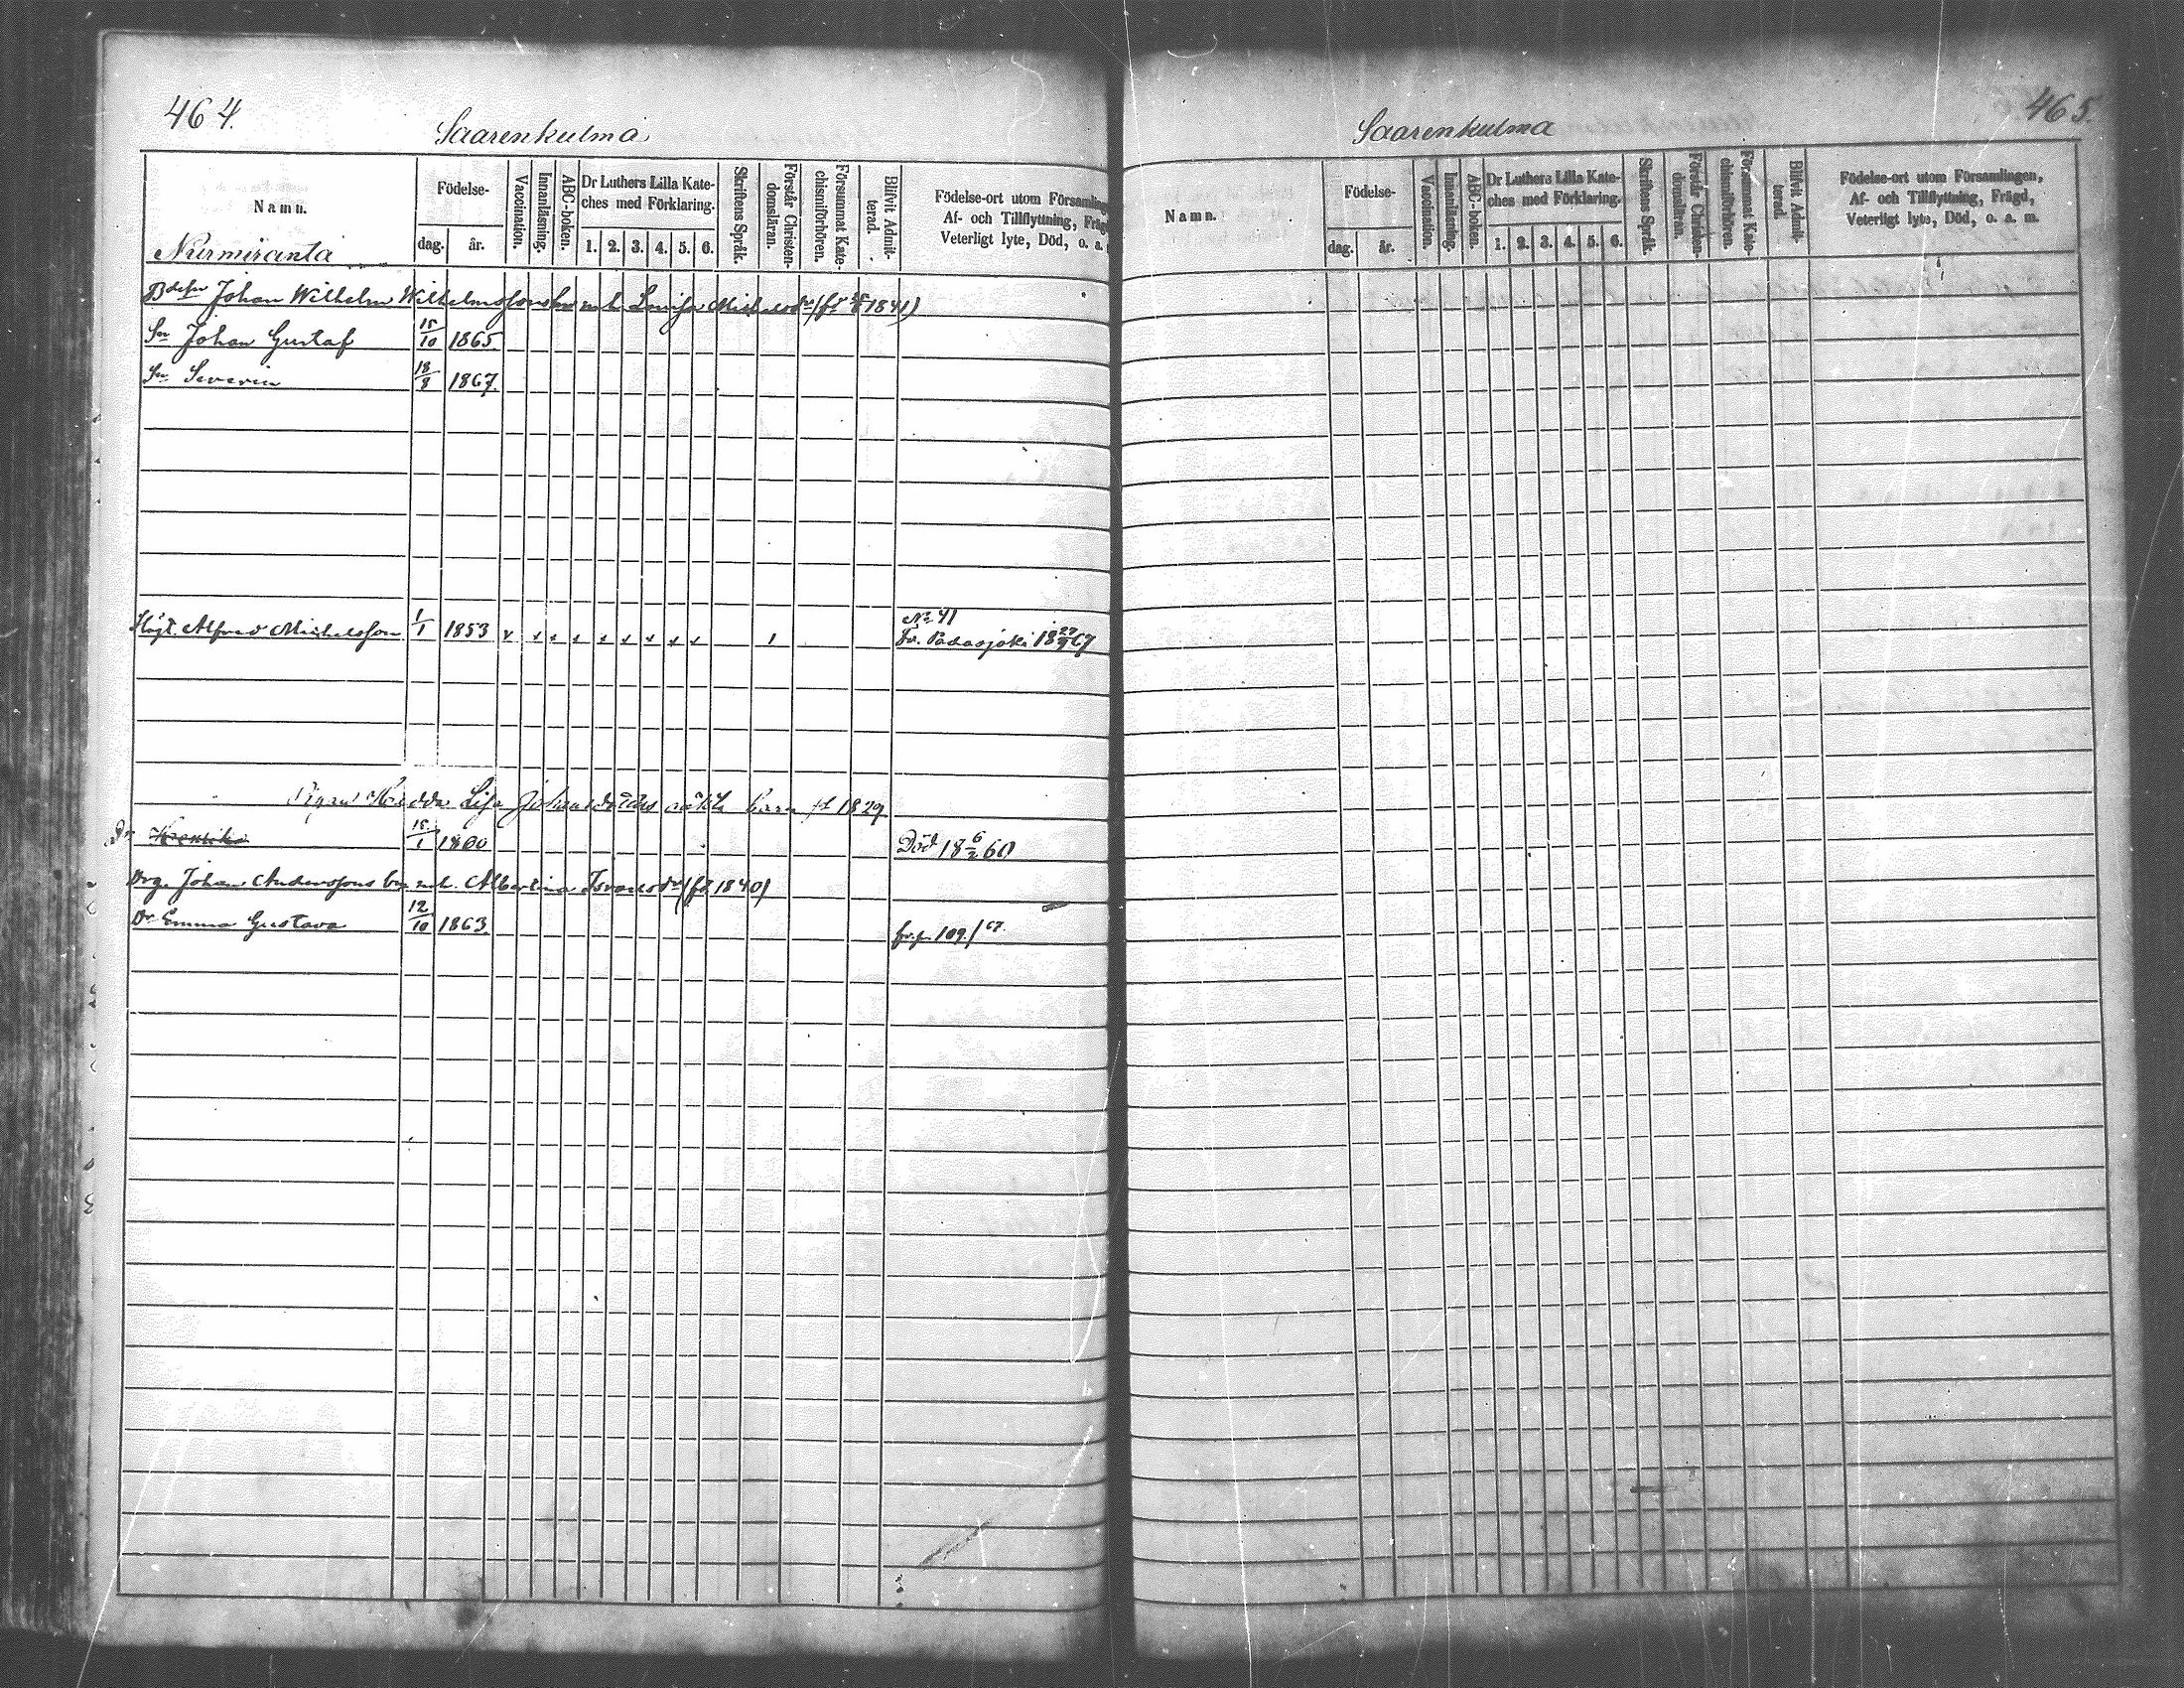 464.
Saarenkulma
Namn.
Födelse-
dag.
år.
Vaccination.
Innanläsning.
ABC-boken.
Dr Luthers Lilla Kate-
ches med Förklaring.
1. 2. 3. 4. 5. 6.
Skriftens Språk.
Förstår Christen-
domsläran.
Försummat Kate-
chismiförhören.
Blifvit Admit-
terad.
Födelse-ort utom Församling
Af- och Tillflyttning, Fräg
Veterligt lyte, Död, o. a.
Nurmiranta
Johan Wilhelm Wilhelmssons bn m. h. Lovisa Michelsdr (fd 1841)
Sn Johan Gustaf 15/10 1865
Sn Severin 18/8 1867.
No 41
Alfred Michelsson 1/1 1853 x x x x x x x x x 1 fr. Padasjoki 18 67
Hedda Lisa Johansdotters oäkta barn fd 1829
Dr Henrika 15/1 1860 Död 18 6/2 60
Drg. Johan Anderssons bn m. h. Albertina (fd 1840)
Dr Emma Gustava 12/10 1863. fr. p. 109./67.
465.
Saarenkulma
Namn.
Födelse-
dag.
år.
Vaccination.
Innanläsning.
ABC-boken.
Dr Luthers Lilla Kate-
ches med Förklaring.
1. 2. 3. 4. 5. 6.
Skriftens Språk.
Förstår Christen-
domsläran.
Försummat Kate-
chismiförhören.
Blifvit Admit-
terad.
Födelse-ort utom Församlingen,
Af- och Tillflyttning, Frägd,
Veterligt lyte, Död, o. a. m.